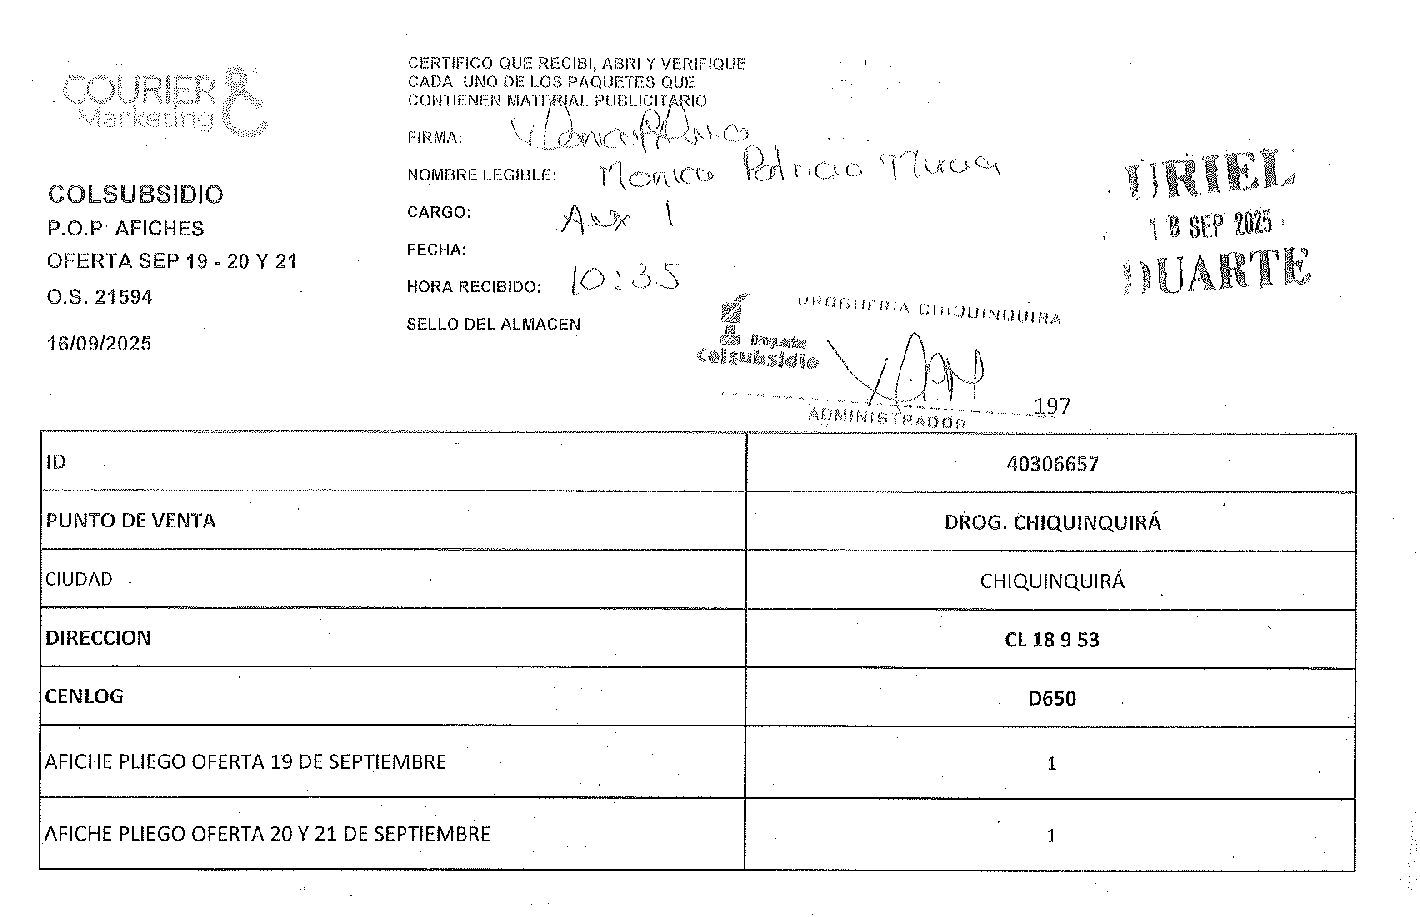 COURIER
Marketing
COLSUBSIDIO
P.O.P. AFICHES
OFERTA SEP 19 - 20 Y 21
O.S. 21594
16/09/2025
CERTIFICO QUE RECIBI, ABRI Y VERIFIQUE
CADA UNO DE LOS PAQUETES QUE
CONTIENEN MATERIAL PUBLICITARIO
FIRMA:
NOMBRE LEGIBLE: Monica Patricia
CARGO: Aux 1
FECHA:
HORA RECIBIDO: 10:35
SELLO DEL ALMACEN
URIEL
18 SEP 2025
DUARTE
DROGUERIA CHIQUINQUIRA
Droguerías
Colsubsidio
ADMINISTRADOR
197
ID 40306657
PUNTO DE VENTA DROG. CHIQUINQUIRÁ
CIUDAD CHIQUINQUIRÁ
DIRECCION CL 18 9 53
CENLOG D650
AFICHE PLIEGO OFERTA 19 DE SEPTIEMBRE 1
AFICHE PLIEGO OFERTA 20 Y 21 DE SEPTIEMBRE 1